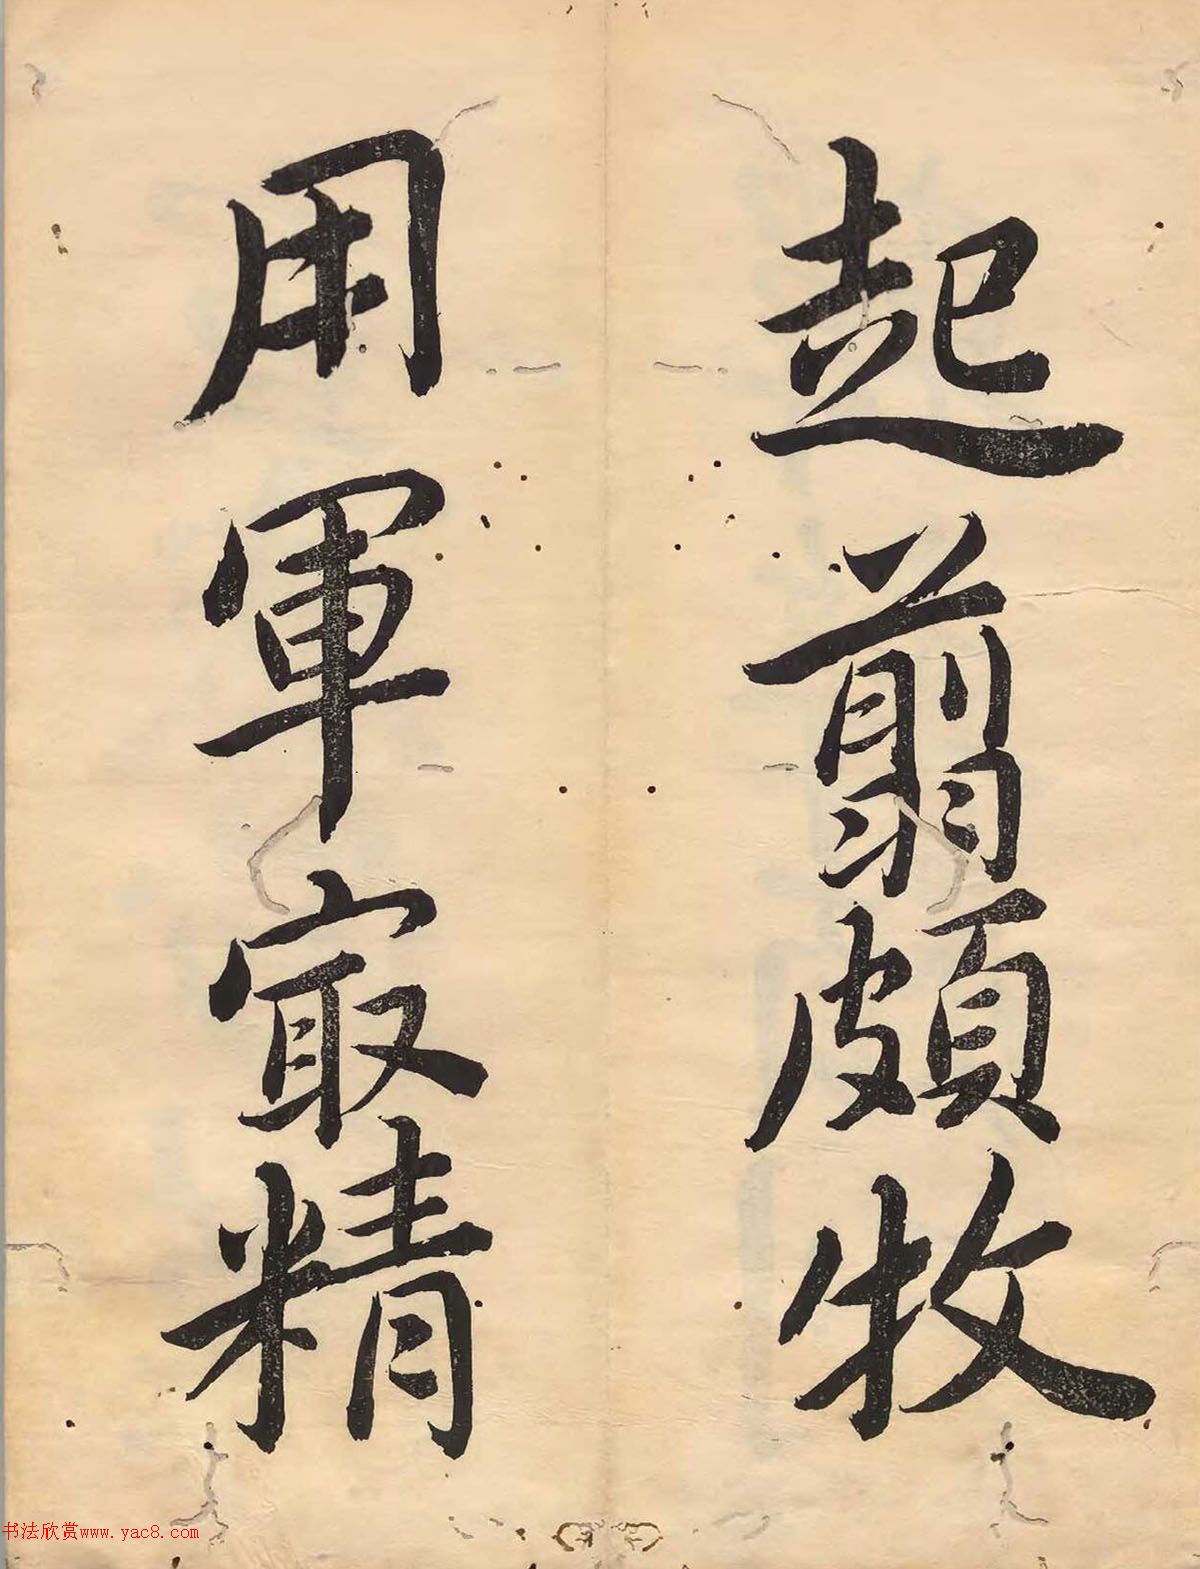 起翦頗牧
用軍冣精
书法欣赏www.yac8.com